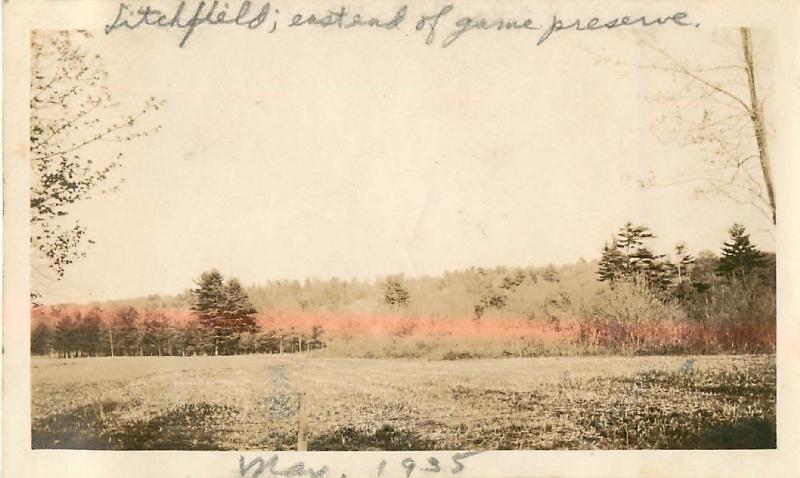 Litchfield; east end of game preserve.
May, 1935